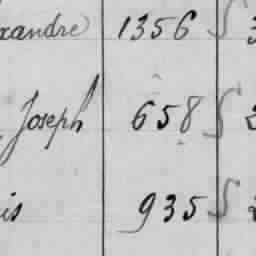 xandre 1356 S
Joseph 658 S
is 935 S